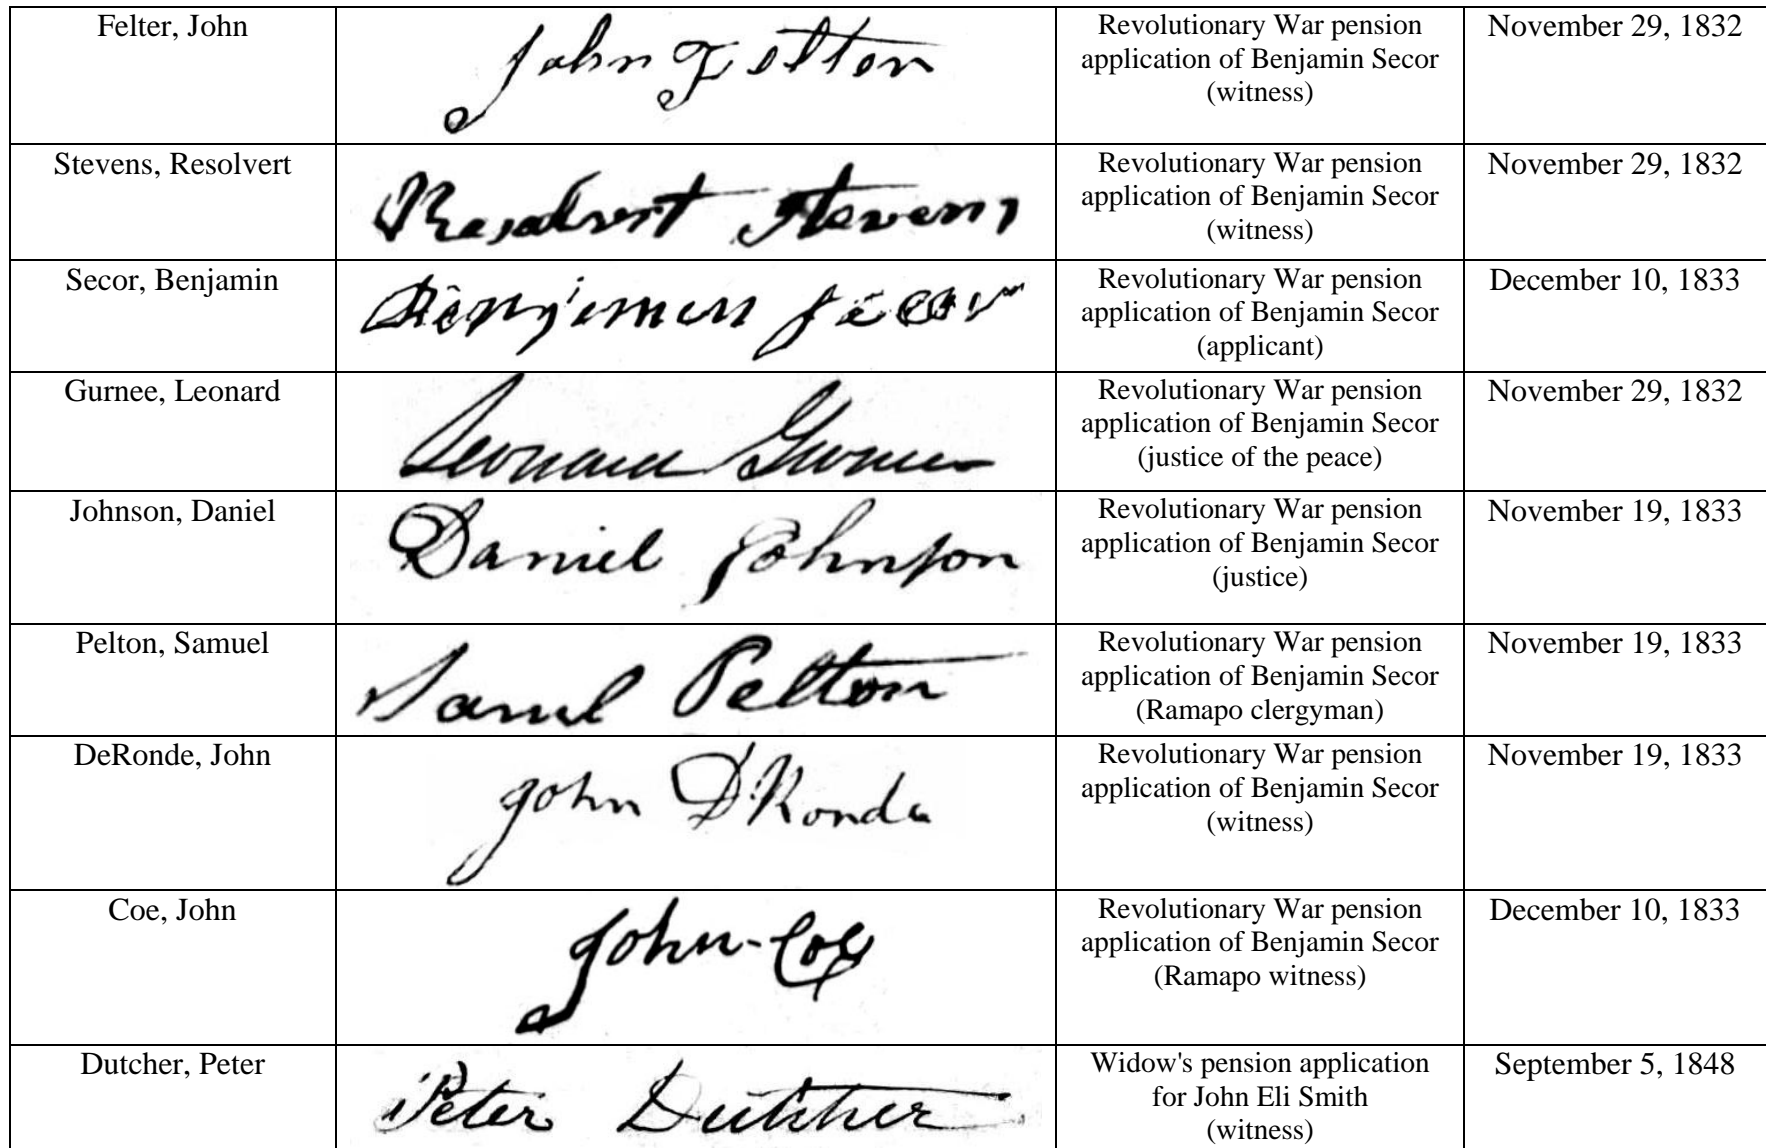 Felter, John
John Felton
Revolutionary War pension
application of Benjamin Secor
(witness)
November 29, 1832
Stevens, Resolvert
Resolvert Stevens
Revolutionary War pension
application of Benjamin Secor
(witness)
November 29, 1832
Secor, Benjamin
Benjemen Secor
Revolutionary War pension
application of Benjamin Secor
(applicant)
December 10, 1833
Gurnee, Leonard
Leonard Gurnee
Revolutionary War pension
application of Benjamin Secor
(justice of the peace)
November 29, 1832
Johnson, Daniel
Daniel Johnson
Revolutionary War pension
application of Benjamin Secor
(justice)
November 19, 1833
Pelton, Samuel
Saml Pelton
Revolutionary War pension
application of Benjamin Secor
(Ramapo clergyman)
November 19, 1833
DeRonde, John
John DRonde
Revolutionary War pension
application of Benjamin Secor
(witness)
November 19, 1833
Coe, John
John Coe
Revolutionary War pension
application of Benjamin Secor
(Ramapo witness)
December 10, 1833
Dutcher, Peter
Peter Dutcher
Widow's pension application
for John Eli Smith
(witness)
September 5, 1848